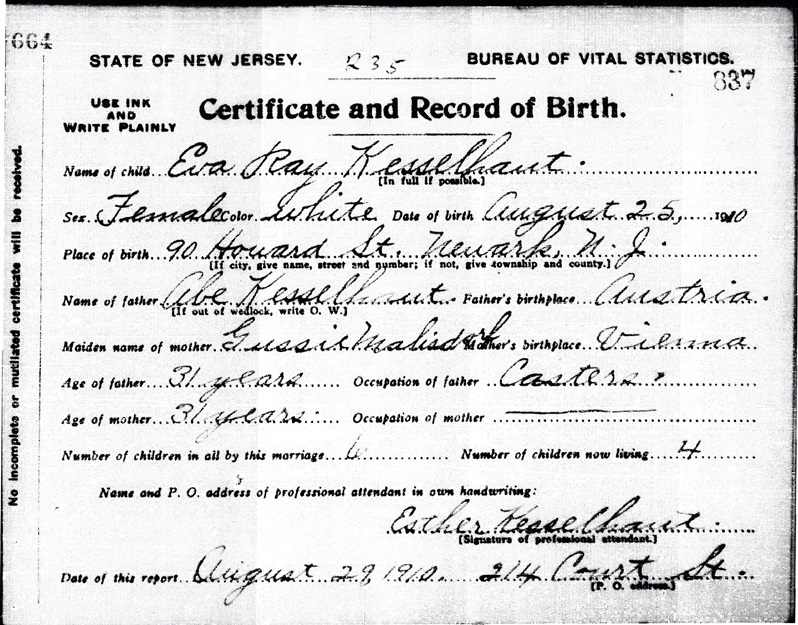 664
STATE OF NEW JERSEY. 235 BUREAU OF VITAL STATISTICS.
837
USE INK
AND
WRITE PLAINLY
Certificate and Record of Birth.
Name of child Eva Ray Kesselhaut.
[In full if possible.]
Sex Female Color White Date of birth August 25, 1910
Place of birth 90 Howard St. Newark, N. J.
[If city, give name, street and number; if not, give township and county.]
Name of father Abe Kesselhaut. Father's birthplace Austria.
[If out of wedlock, write O. W.]
Maiden name of mother Gussie Malisdorf Mother's birthplace Vienna
Age of father 31 years Occupation of father Casters
Age of mother 31 years Occupation of mother
Number of children in all by this marriage 6 Number of children now living 4
Name and P. O. address of professional attendant in own handwriting:
Esther Kesselhaut.
[Signature of professional attendant.]
Date of this report August 29, 1910. 214 Court St.
[P. O. address.]
No incomplete or mutilated certificate will be received.